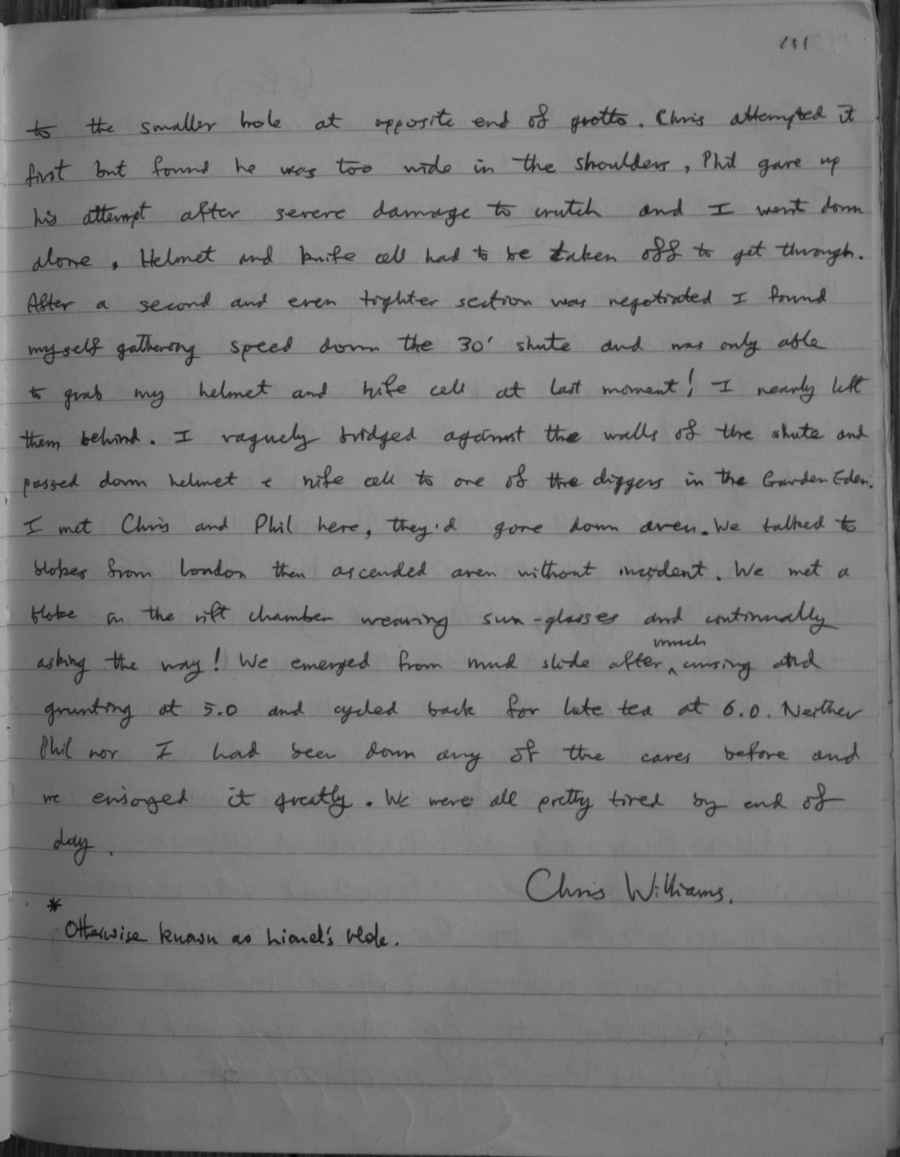 131
to the smaller hole at opposite end of grotto. Chris attempted it
first but found he was too wide in the shoulders, Phil gave up
his attempt after severe damage to crutch and I went down
alone. Helmet and knife cell had to be taken off to get through.
After a second and even tighter section was negotiated I found
myself gathering speed down the 30' shute and was only able
to grab my helmet and nife cell at last moment! I nearly left
them behind. I vaguely bridged against the walls of the shute and
passed down helmet & nife cell to one of the diggers in the Garden Eden.
I met Chris and Phil here, they'd gone down aven. We talked to
blokes from London then ascended aven without incident. We met a
bloke in the rift chamber wearing sun-glasses and continually
asking the way! We emerged from mud slide after much cursing and
grunting at 5.0 and cycled back for late tea at 6.0. Neither
Phil nor I had been down any of the caves before and
we enjoyed it greatly. We were all pretty tired by end of
day.
Chris Williams.
*
Otherwise known as Lionel's Hole.